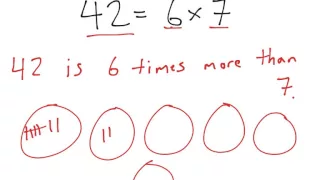 42 = 6 x 7
42 is 6 times more than
7.